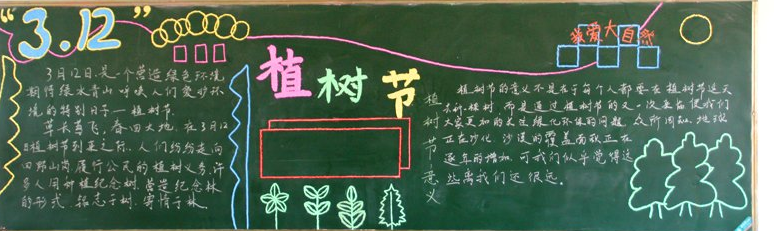 “3.12”
3月12日是一个营造绿色环境
期待绿水青山呼唤人们爱护环
境的特别日子—植树节
草长莺飞，春回大地，在3月12
日植树节到来之前，人们纷纷走向
田野山岗履行公民的植树义务，许
多人用种植纪念树、营造纪念林
的形式，铭志于树，寄情于林。
植树节
我爱大自然
植树节意义
植树节的意义不是在于每个人都要在植树节这天
去种植树，而是通过植树节的又一次来临使我们
大家更加的关注绿化环保的问题，众所周知，地球
正在沙化，沙漠的覆盖面积正在
逐年的增加，可我们似乎觉得这
些离我们还很远。